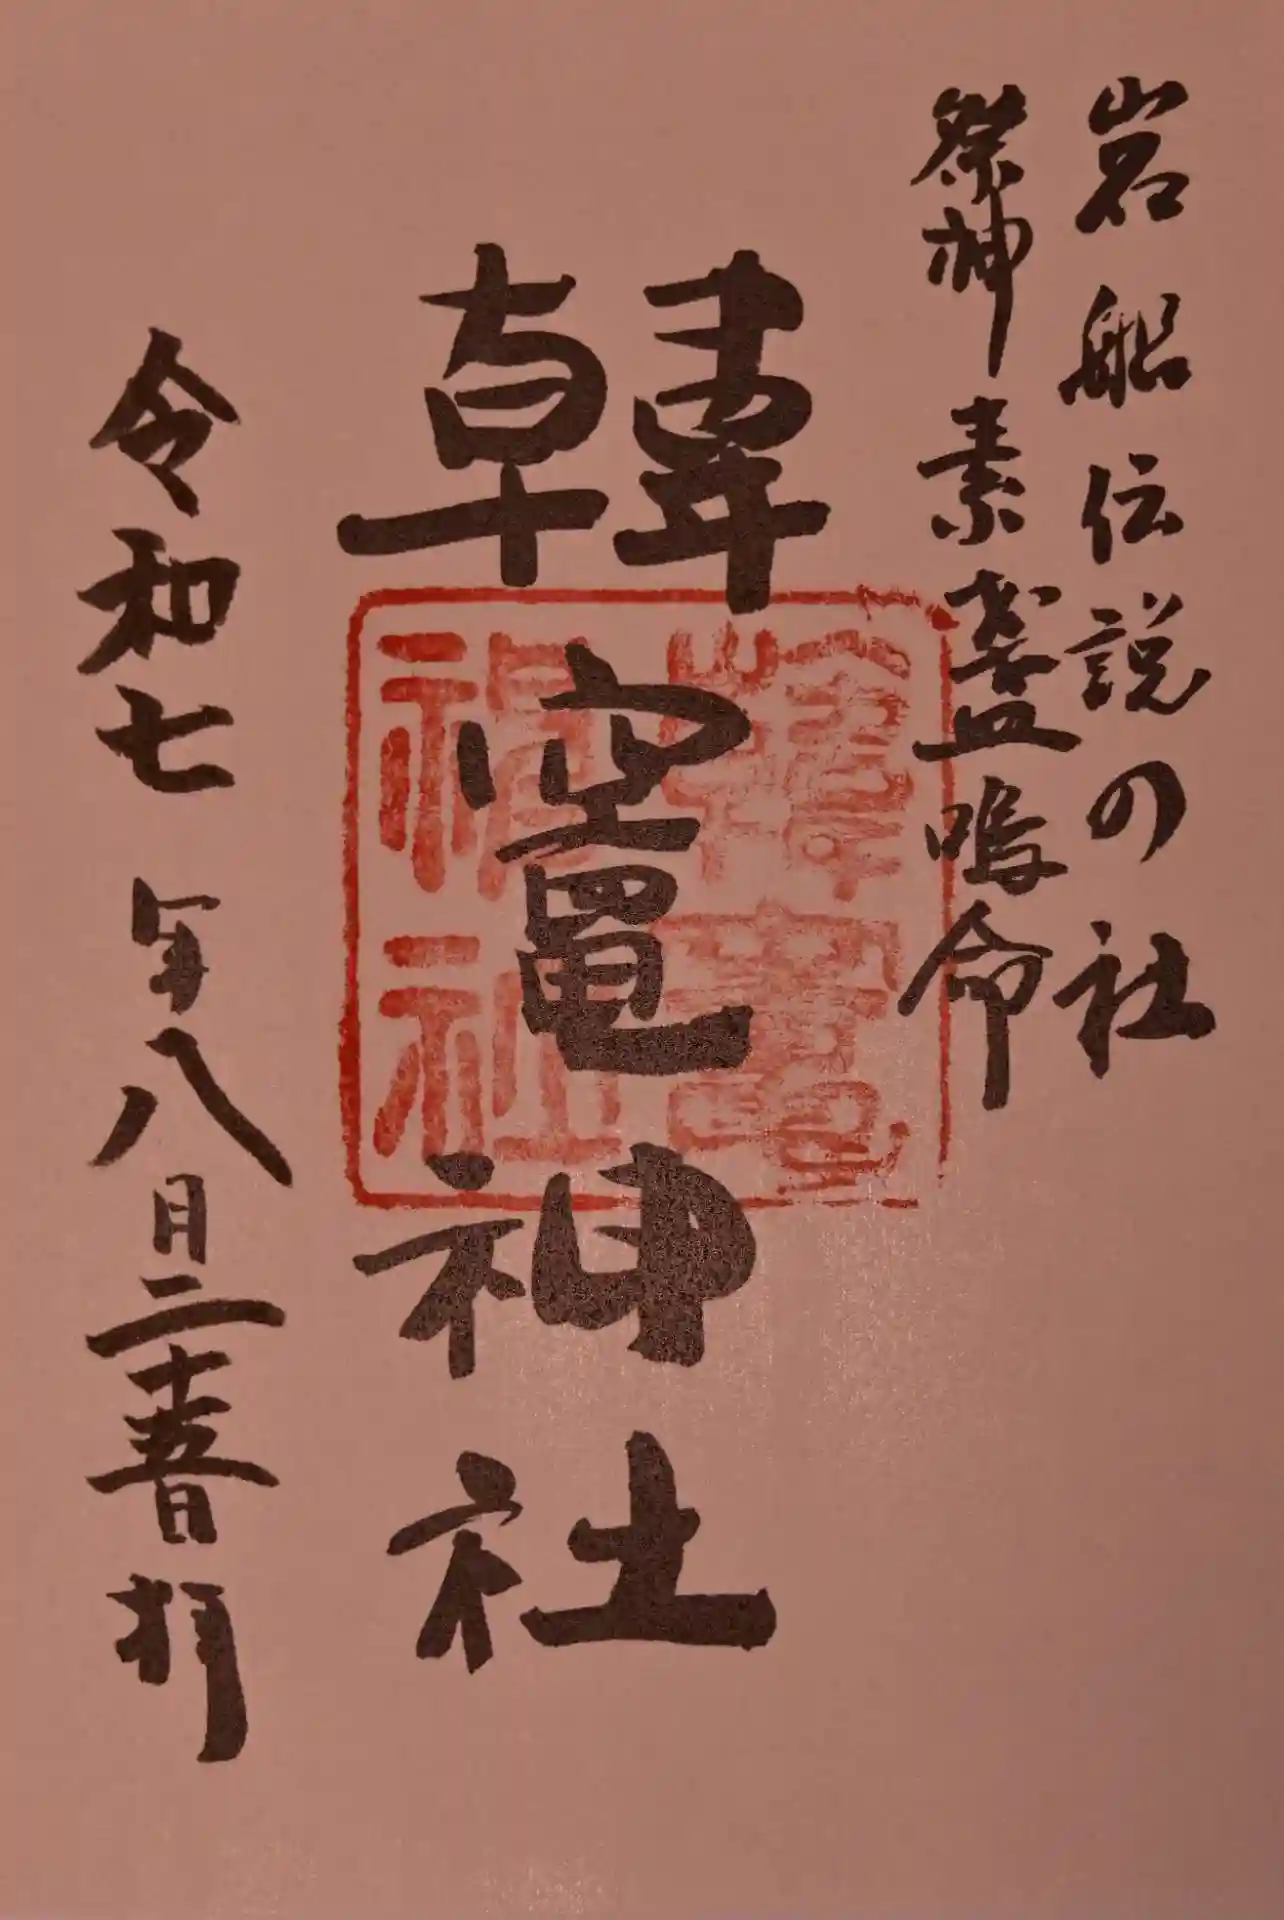 岩船伝説の社
祭神 素盞嗚命
韓竈神社
韓竈神社
令和七年八月二十五日 拝